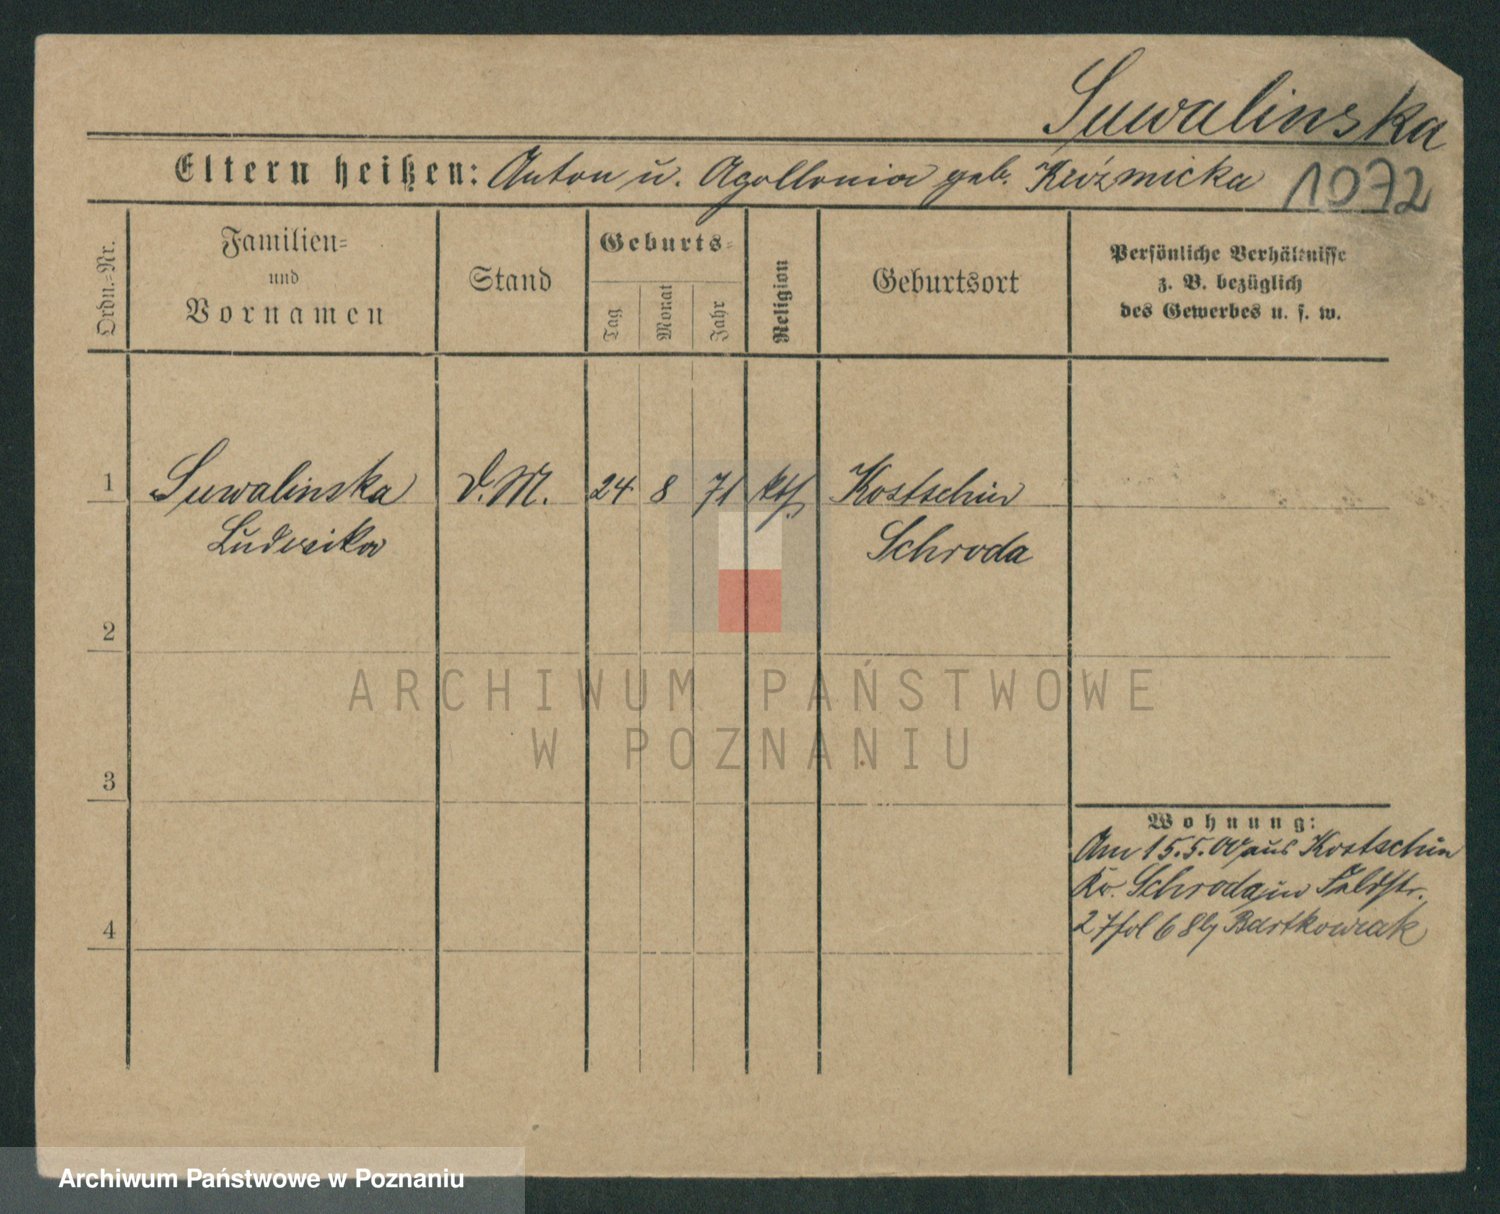 Suwalinska
Eltern heißen: Anton u. Apollonia geb. Kuźmicka
1072
Ordn.=Nr.
Familien=
und
Vornamen
Stand
Geburts=
Tag
Monat
Jahr
Religion
Geburtsort
Persönliche Verhältnisse
z. B. bezüglich
des Gewerbes u. s. w.
1 Suwalinska D.M. 24 8 71 kth. Kostschin
Ludwika Schroda
2
ARCHIWUM PAŃSTWOWE
W POZNANIU
3
Wohnung:
Am 15.5.00 aus Kostschin
Kr. Schroda in Feldstr.
27 fol 6 Bartkowiak
4
Archiwum Państwowe w Poznaniu